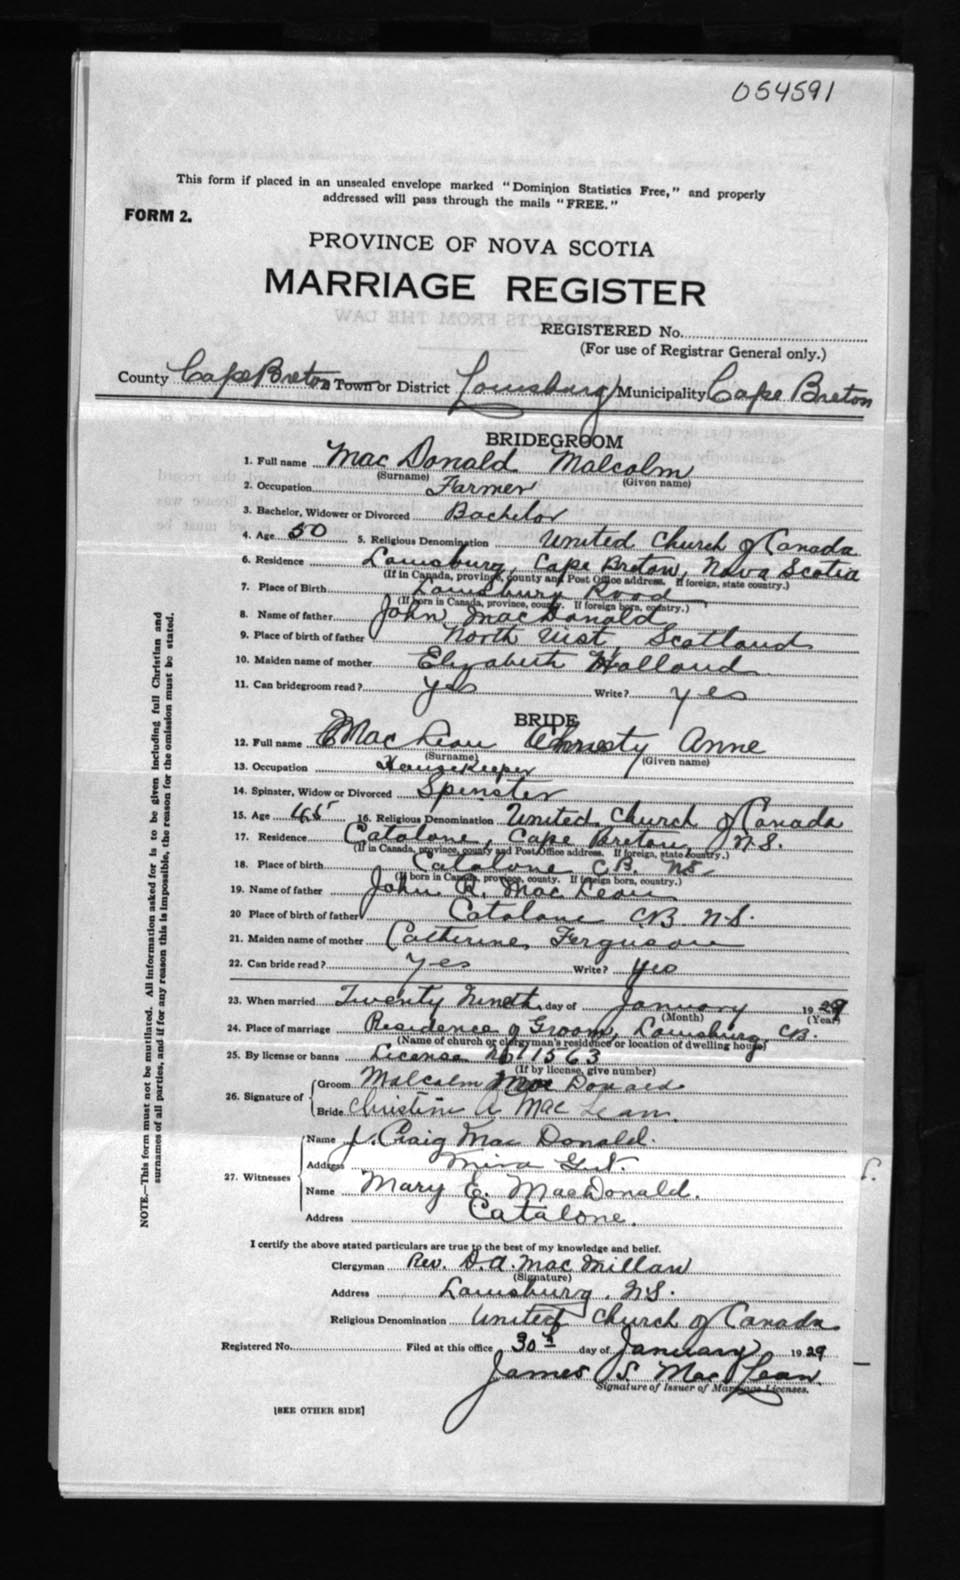 054591
This form if placed in an unsealed envelope marked "Dominion Statistics Free," and properly
addressed will pass through the mails "FREE."
FORM 2.
PROVINCE OF NOVA SCOTIA
MARRIAGE REGISTER
REGISTERED No.
(For use of Registrar General only.)
County Cape Breton Town or District Louisburg Municipality Cape Breton
BRIDEGROOM
1. Full name Mac Donald Malcolm
(Surname) (Given name)
2. Occupation Farmer
3. Bachelor, Widower or Divorced Bachelor
4. Age 50 5. Religious Denomination United Church of Canada
6. Residence Louisburg, Cape Breton, Nova Scotia
(If in Canada, province, county and Post Office address. If foreign, state country.)
7. Place of Birth Louisburg Road
(If born in Canada, province, county. If foreign born, country.)
8. Name of father John MacDonald
9. Place of birth of father North Uist, Scotland
10. Maiden name of mother Elizabeth Holland
11. Can bridegroom read? yes Write? yes
BRIDE
12. Full name MacLean Christy Anne
(Surname) (Given name)
13. Occupation Housekeeper
14. Spinster, Widow or Divorced Spinster
15. Age 45 16. Religious Denomination United Church of Canada
17. Residence Catalone, Cape Breton, N.S.
(If in Canada, province, county and Post Office address. If foreign, state country.)
18. Place of birth Catalone C.B. N.S.
(If born in Canada, province, county. If foreign born, country.)
19. Name of father John R. MacLean
20 Place of birth of father Catalone CB N.S.
21. Maiden name of mother Catherine Ferguson
22. Can bride read? yes Write? yes
23. When married Twenty Nineth day of January 1929
(Month) (Year)
24. Place of marriage Residence of Groom, Louisburg, CB.
(Name of church or clergyman's residence or location of dwelling house)
25. By license or banns License No 11563
(If by license, give number)
26. Signature of
Groom Malcolm Mac Donald
Bride Christine A MacLean.
27. Witnesses
Name J. Craig Mac Donald.
Address Mira Gut.
Name Mary E. MacDonald.
Address Catalone.
I certify the above stated particulars are true to the best of my knowledge and belief.
Clergyman Rev. D.A. MacMillan
(Signature)
Address Louisburg, N.S.
Religious Denomination United Church of Canada
Registered No. Filed at this office 30th day of January 1929
James S. MacLean.
Signature of Issuer of Marriage Licenses.
[SEE OTHER SIDE]
NOTE.—This form must not be mutilated. All information asked for is to be given including full Christian and
surnames of all parties, and if for any reason this is impossible, the reason for the omission must be stated.